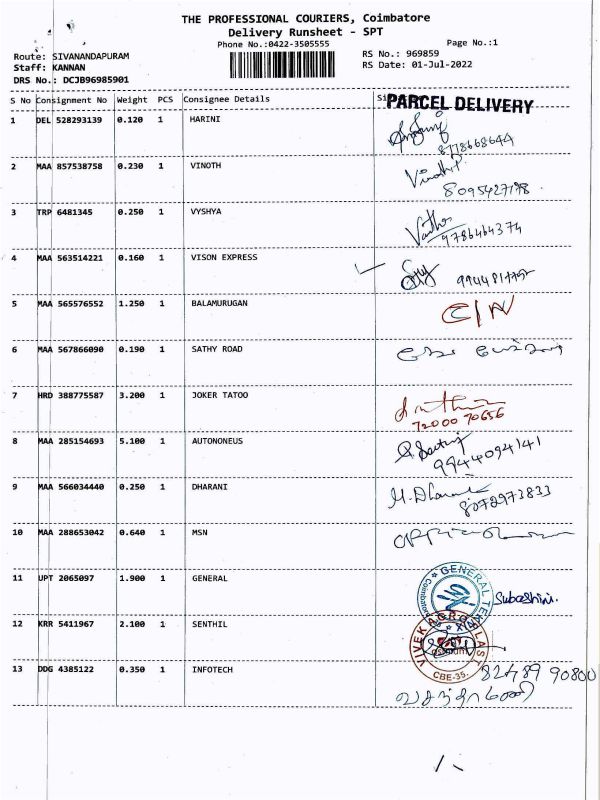 THE PROFESSIONAL COURIERS, Coimbatore
Delivery Runsheet - SPT
Phone No.:0422-3505555
Page No.:1
Route: SIVANANDAPURAM
RS No.: 969859
Staff: KANNAN
RS Date: 01-Jul-2022
DRS No.: DCJB96985901
S No Consignment No Weight PCS Consignee Details
PARCEL DELIVERY
1 DEL 528293139 0.120 1 HARINI
8778668644
2 MAA 857538758 0.230 1 VINOTH
Vinoth
8095427198
3 TRP 6481345 0.250 1 VYSHYA
9786464374
4 MAA 563514221 0.160 1 VISON EXPRESS
5 MAA 565576552 1.250 1 BALAMURUGAN
C/N
6 MAA 567866090 0.190 1 SATHY ROAD
7 HRD 388775587 3.200 1 JOKER TATOO
72000 70656
8 MAA 285154693 5.100 1 AUTONONEUS
9944094141
9 MAA 566034440 0.250 1 DHARANI
M. Dharani
8072973833
10 MAA 288653042 0.640 1 MSN
11 UPT 2065097 1.900 1 GENERAL
GENERAL
Coimbatore
Subashini.
12 KRR 5411967 2.100 1 SENTHIL
VIVEK AGRO
CBE-35.
13 DDG 4385122 0.350 1 INFOTECH
82489 90800
வசந்தாமணி